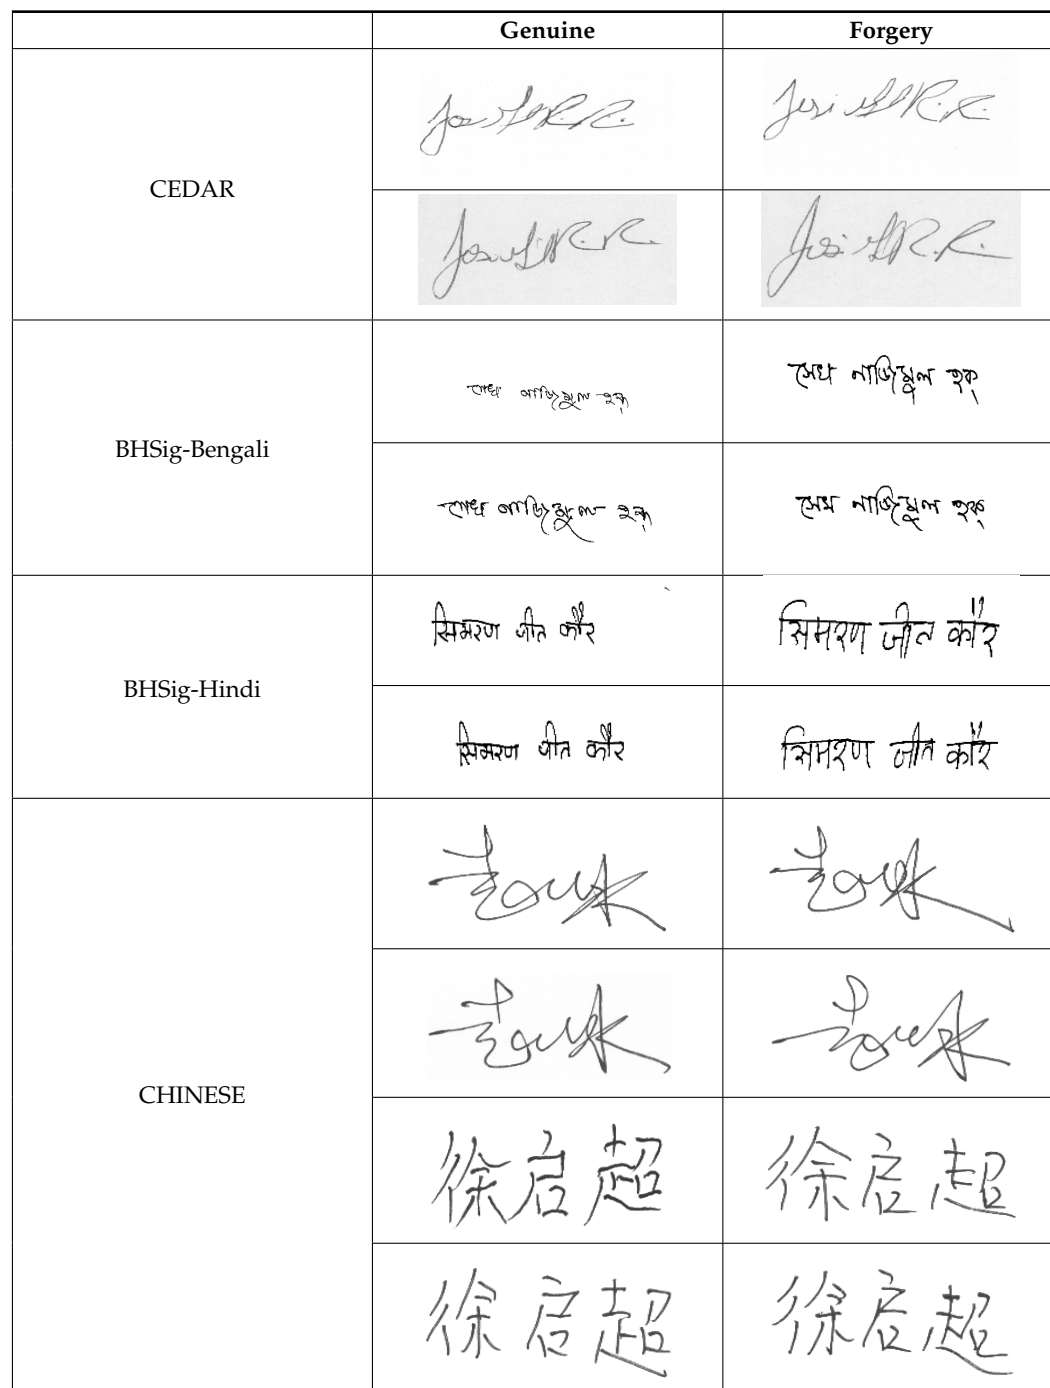 Genuine Forgery
CEDAR
BHSig-Bengali
সেখ নাজিমুল হক্ সেখ নাজিমুল হক্
সেখ নাজিমুল হক্ সেখ নাজিমুল হক্
BHSig-Hindi
सिमरण जीत कौर सिमरण जीत कौर
सिमरण जीत कौर सिमरण जीत कौर
CHINESE
徐启超 徐启超
徐启超 徐启超